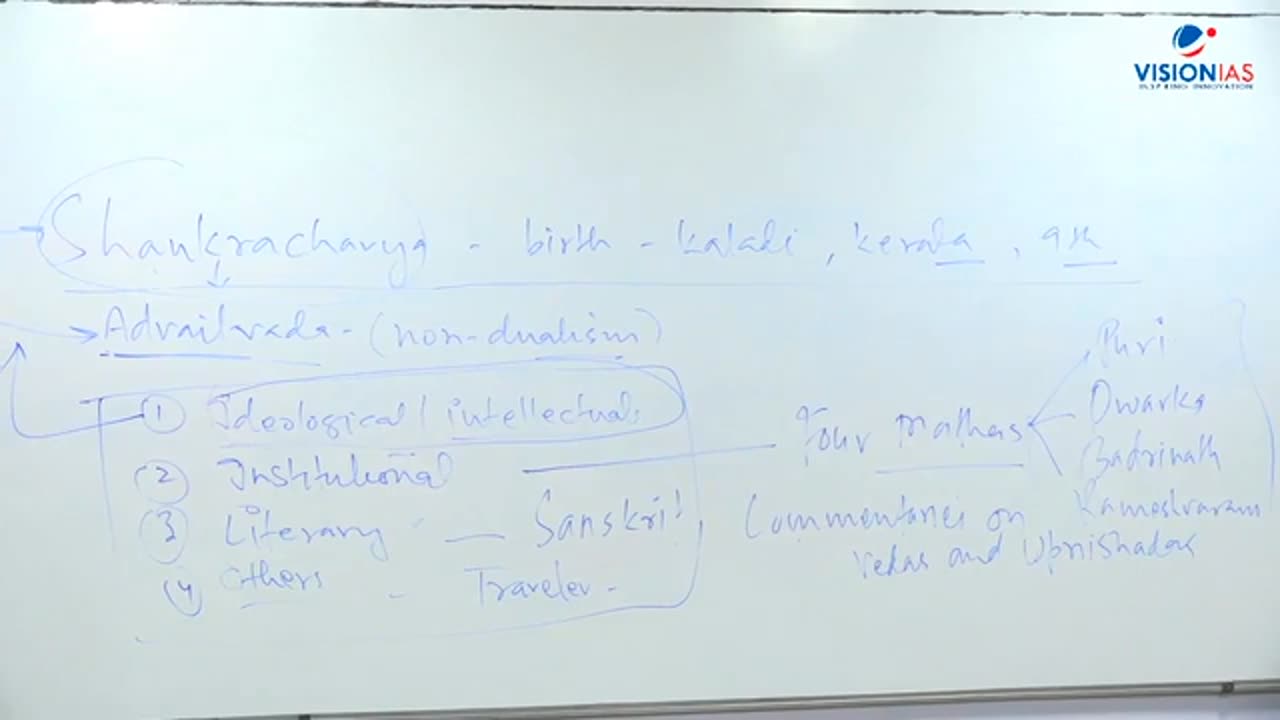 VISIONIAS
INSPIRING INNOVATION
Shankracharya - birth - kaladi, kerala, 9th
Advaitvada - (non-dualism)
① Ideological / intellectual
② Institutional — Four mathas Puri
Dwarka
Badrinath
Rameshvaram
③ Literary — Sanskrit, Commentaries on
vedas and Upnishadas
④ Others - Traveler -